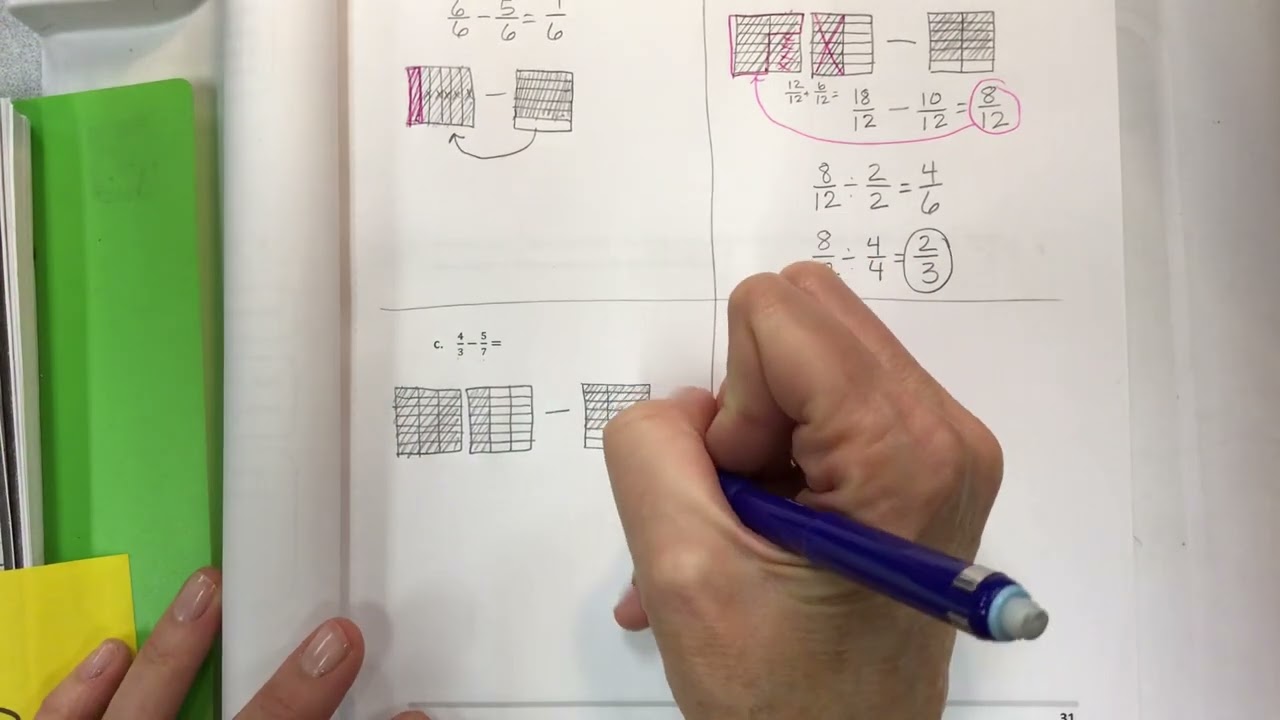 6/6 − 5/6 = 1/6
12/12 + 6/12 =
18/12 − 10/12 = 8/12
8/12 ÷ 2/2 = 4/6
8/ ÷ 4/4 = 2/3
c. 4/3 − 5/7 =
31